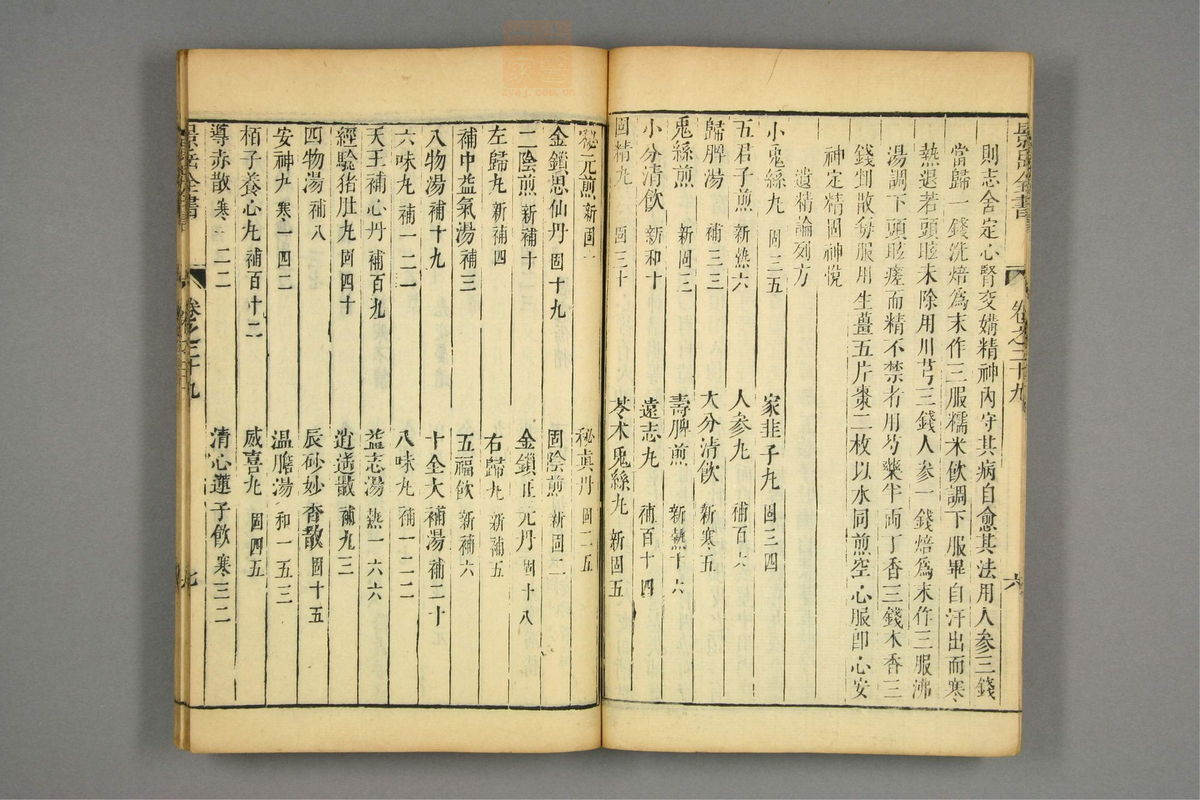 則志舍定心腎交媾精神內守其病自愈其法用人參三錢
當歸一錢洗焙爲末作三服糯米飲調下服畢自汗出而寒
熱退若頭眩未除用川芎三錢人參一錢焙爲末作三服沸
湯調下頭眩瘥而精不禁者用芍藥半両丁香三錢木香三
錢剉散每服用生薑五片棗二枚以水同煎空心服卽心安
神定精固神悅
遺精論列方
小兎絲丸 固三五 家韭子丸 固三四
五君子煎 新熱六 人參丸 補百
歸脾湯 補三三 大分清飲 新寒五
兎絲煎 新固三 壽脾煎 新熱十六
小分清飲 新和十 遠志丸 補百十四
固精丸 固三十 苓术兎絲丸 新固五
卷之二十九
六
秘元煎 新固一 秘眞丹 固二五
金鎖思仙丹 固十九 固陰煎 新固二
二陰煎 新補十 金鎖正元丹 固十八
左歸丸 新補四 右歸丸 新補五
補中益氣湯 補三 五福飲 新補六
八物湯 補十九 十全大補湯 補二十
六味丸 補一二一 八味丸 補一二二
天王補心丹 補百九 益志湯 熱一六六
經驗猪肚丸 固四十 逍遙散 補九三
四物湯 補八 辰砂妙香散 固十五
安神丸 寒一四二 温膽湯 和一五三
栢子養心丸 補百十二 威喜丸 固四五
導赤散 寒一二二 清心蓮子飲 寒三二
景岳全書
卷之二十九
七